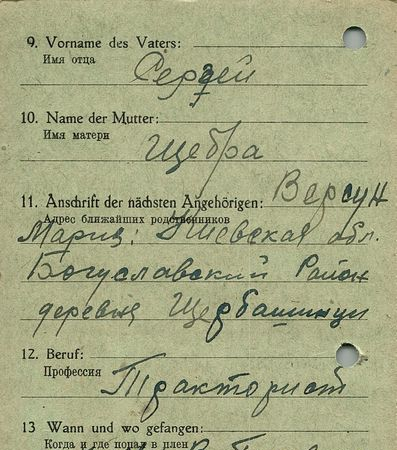 9. Vorname des Vaters:
Имя отца
Сергей
10. Name der Mutter:
Имя матери
Щебра
11. Anschrift der nächsten Angehörigen: Версун
Адрес ближайших родственников
Мария: Киевская обл.
Богуславский Район
деревня Щербашинци
12. Beruf:
Профессия
Тракторист
13 Wann und wo gefangen:
Когда и где попал в плен